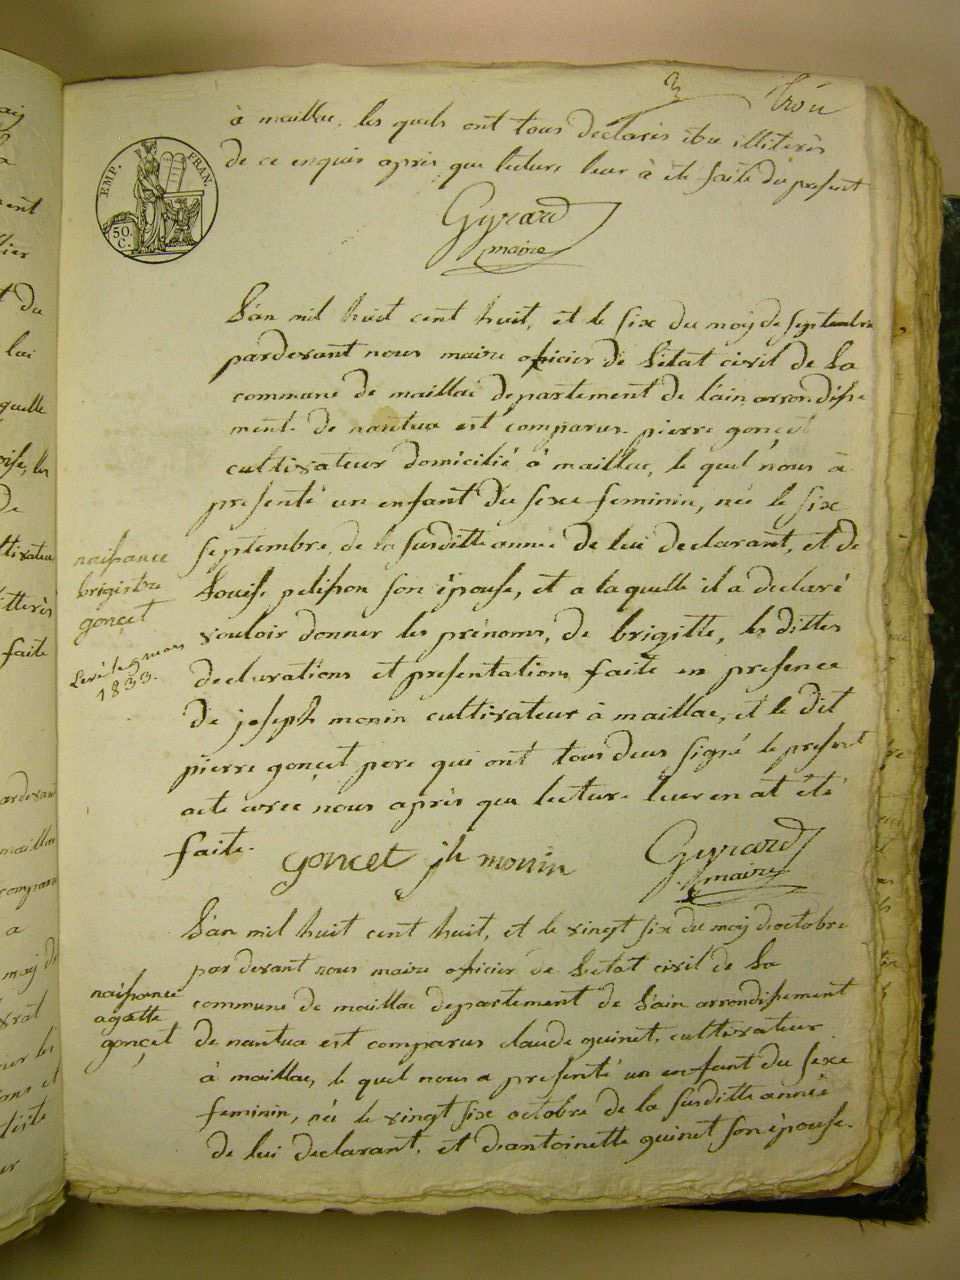 3 trois
à maillac, les quels ont tous declarés être illiterés
de ce enquis après que lecture leur à été faite du present
EMP. FRAN.
50.
C.
Gyrard
maire
L'an mil huit cent huit, et le six du mois de septembre
pardevant nous maire oficier de l'état civil de la
commune de maillac departement de l'ain arrondisse
ment de nantua est comparus pierre gonçet
cultivateur domicilié à maillac, le quel nous à
presenté un enfant du sexe feminin, née le six
septembre, de la susditte année de lui declarant, et de
Louise pelisson son épouse, et a laquelle il a declaré
vouloir donner les prénoms, de brigitte, les dittes
declarations et presentations faite en presence
de joseph monin cultivateur à maillac, et le dit
pierre gonçet pere qui ont tous deus signé le present
acte avec nous après que lecture leur en at été
faite.
naissance
brigitte
gonçet
Levé le 9 mars
1833.
goncet jh monin Gyrard
maire
L'an mil huit cent huit, et le vingt six du mois d'octobre
par devant nous maire oficier de L'etat civil de La
commune de maillac departement de L'ain arrondissement
de nantua est comparus claude guinet, cultivateur
à maillac, le quel nous a presenté un enfant du sexe
feminin, née le vingt six octobre de la susditte année
de lui declarant, et d'antoinette guinet son épouse.
naissance
agatte
gonçet